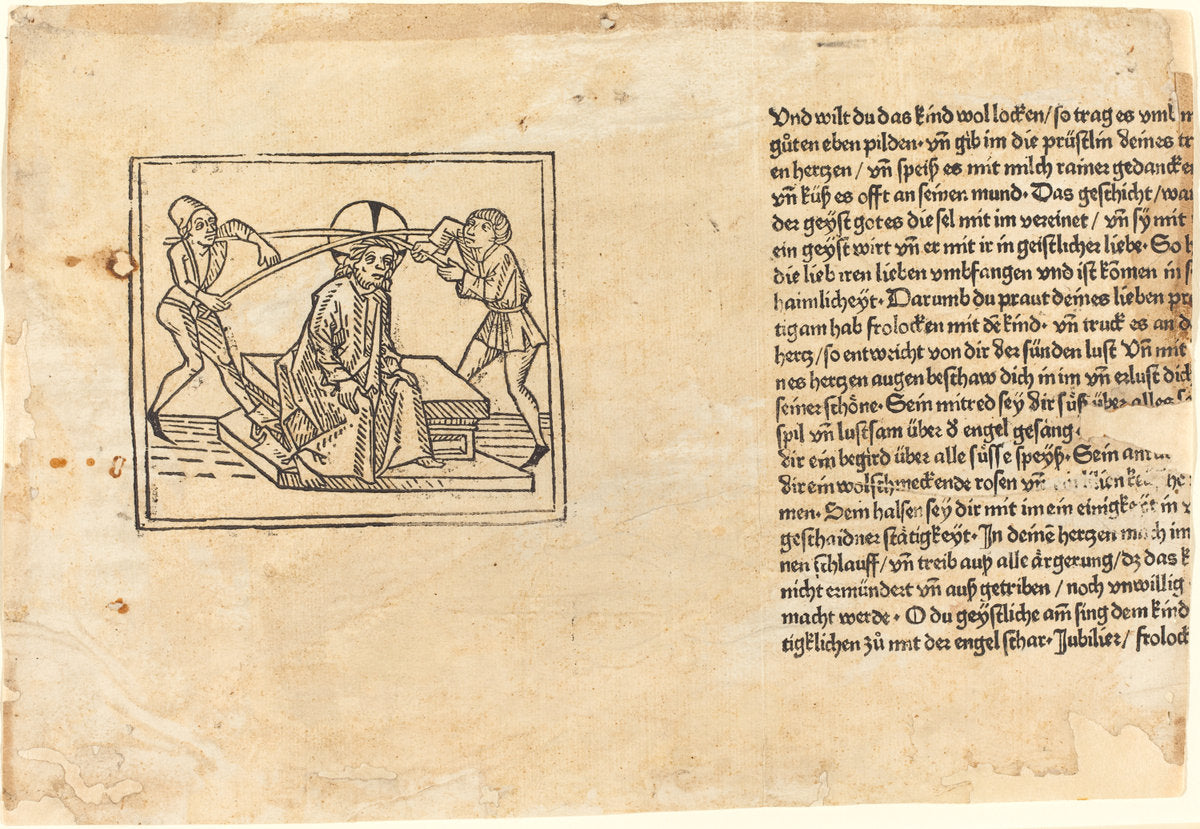 Vnd wilt du das kind wol locken/ so trag es vmb
gůten eben pilden· vn̄ gib im die prüstlin deines
en hertzen/ vn̄ speiß es mit milch rainer gedancken
vn̄ küß es offt an seinen mund· Das geschicht/
der geÿst gotes die sel mit im vereinet/ vn̄ sÿ mit
ein geÿst wirt vn̄ er mit ir in geistlicher liebe· So
die lieb iren lieben vmbfangen vnd ist kōmen in
haimlicheÿt· Darumb du praut deines lieben
tigam hab frolocken mit dē kind· vn̄ truck es an
hertz/ so entweicht von dir der sünden lust Vn̄ mit
nes hertzen augen beschaw dich in im vn̄ erlust dich
seiner schöne· Sein mitred sey dir süß über alles
spil vn̄ lustsam über d̄ engel gesang·
dir ein begird über alle süsse speÿß· Sein
dir ein wolschmeckende rosen vn̄
men· Sein halsen sey dir mit im ein einigkeÿt in
geschaidner stätigkeÿt· In deinē hertzen mach im
nen schlauff/ vn̄ treib auß alle ärgerung/ dz das
nicht ermündert vn̄ auß getriben/ noch vnwillig
macht werde· O du geÿstliche am̄ sing dem kind
tigklichen zů mit der engel schar· Jubilier/ frolock